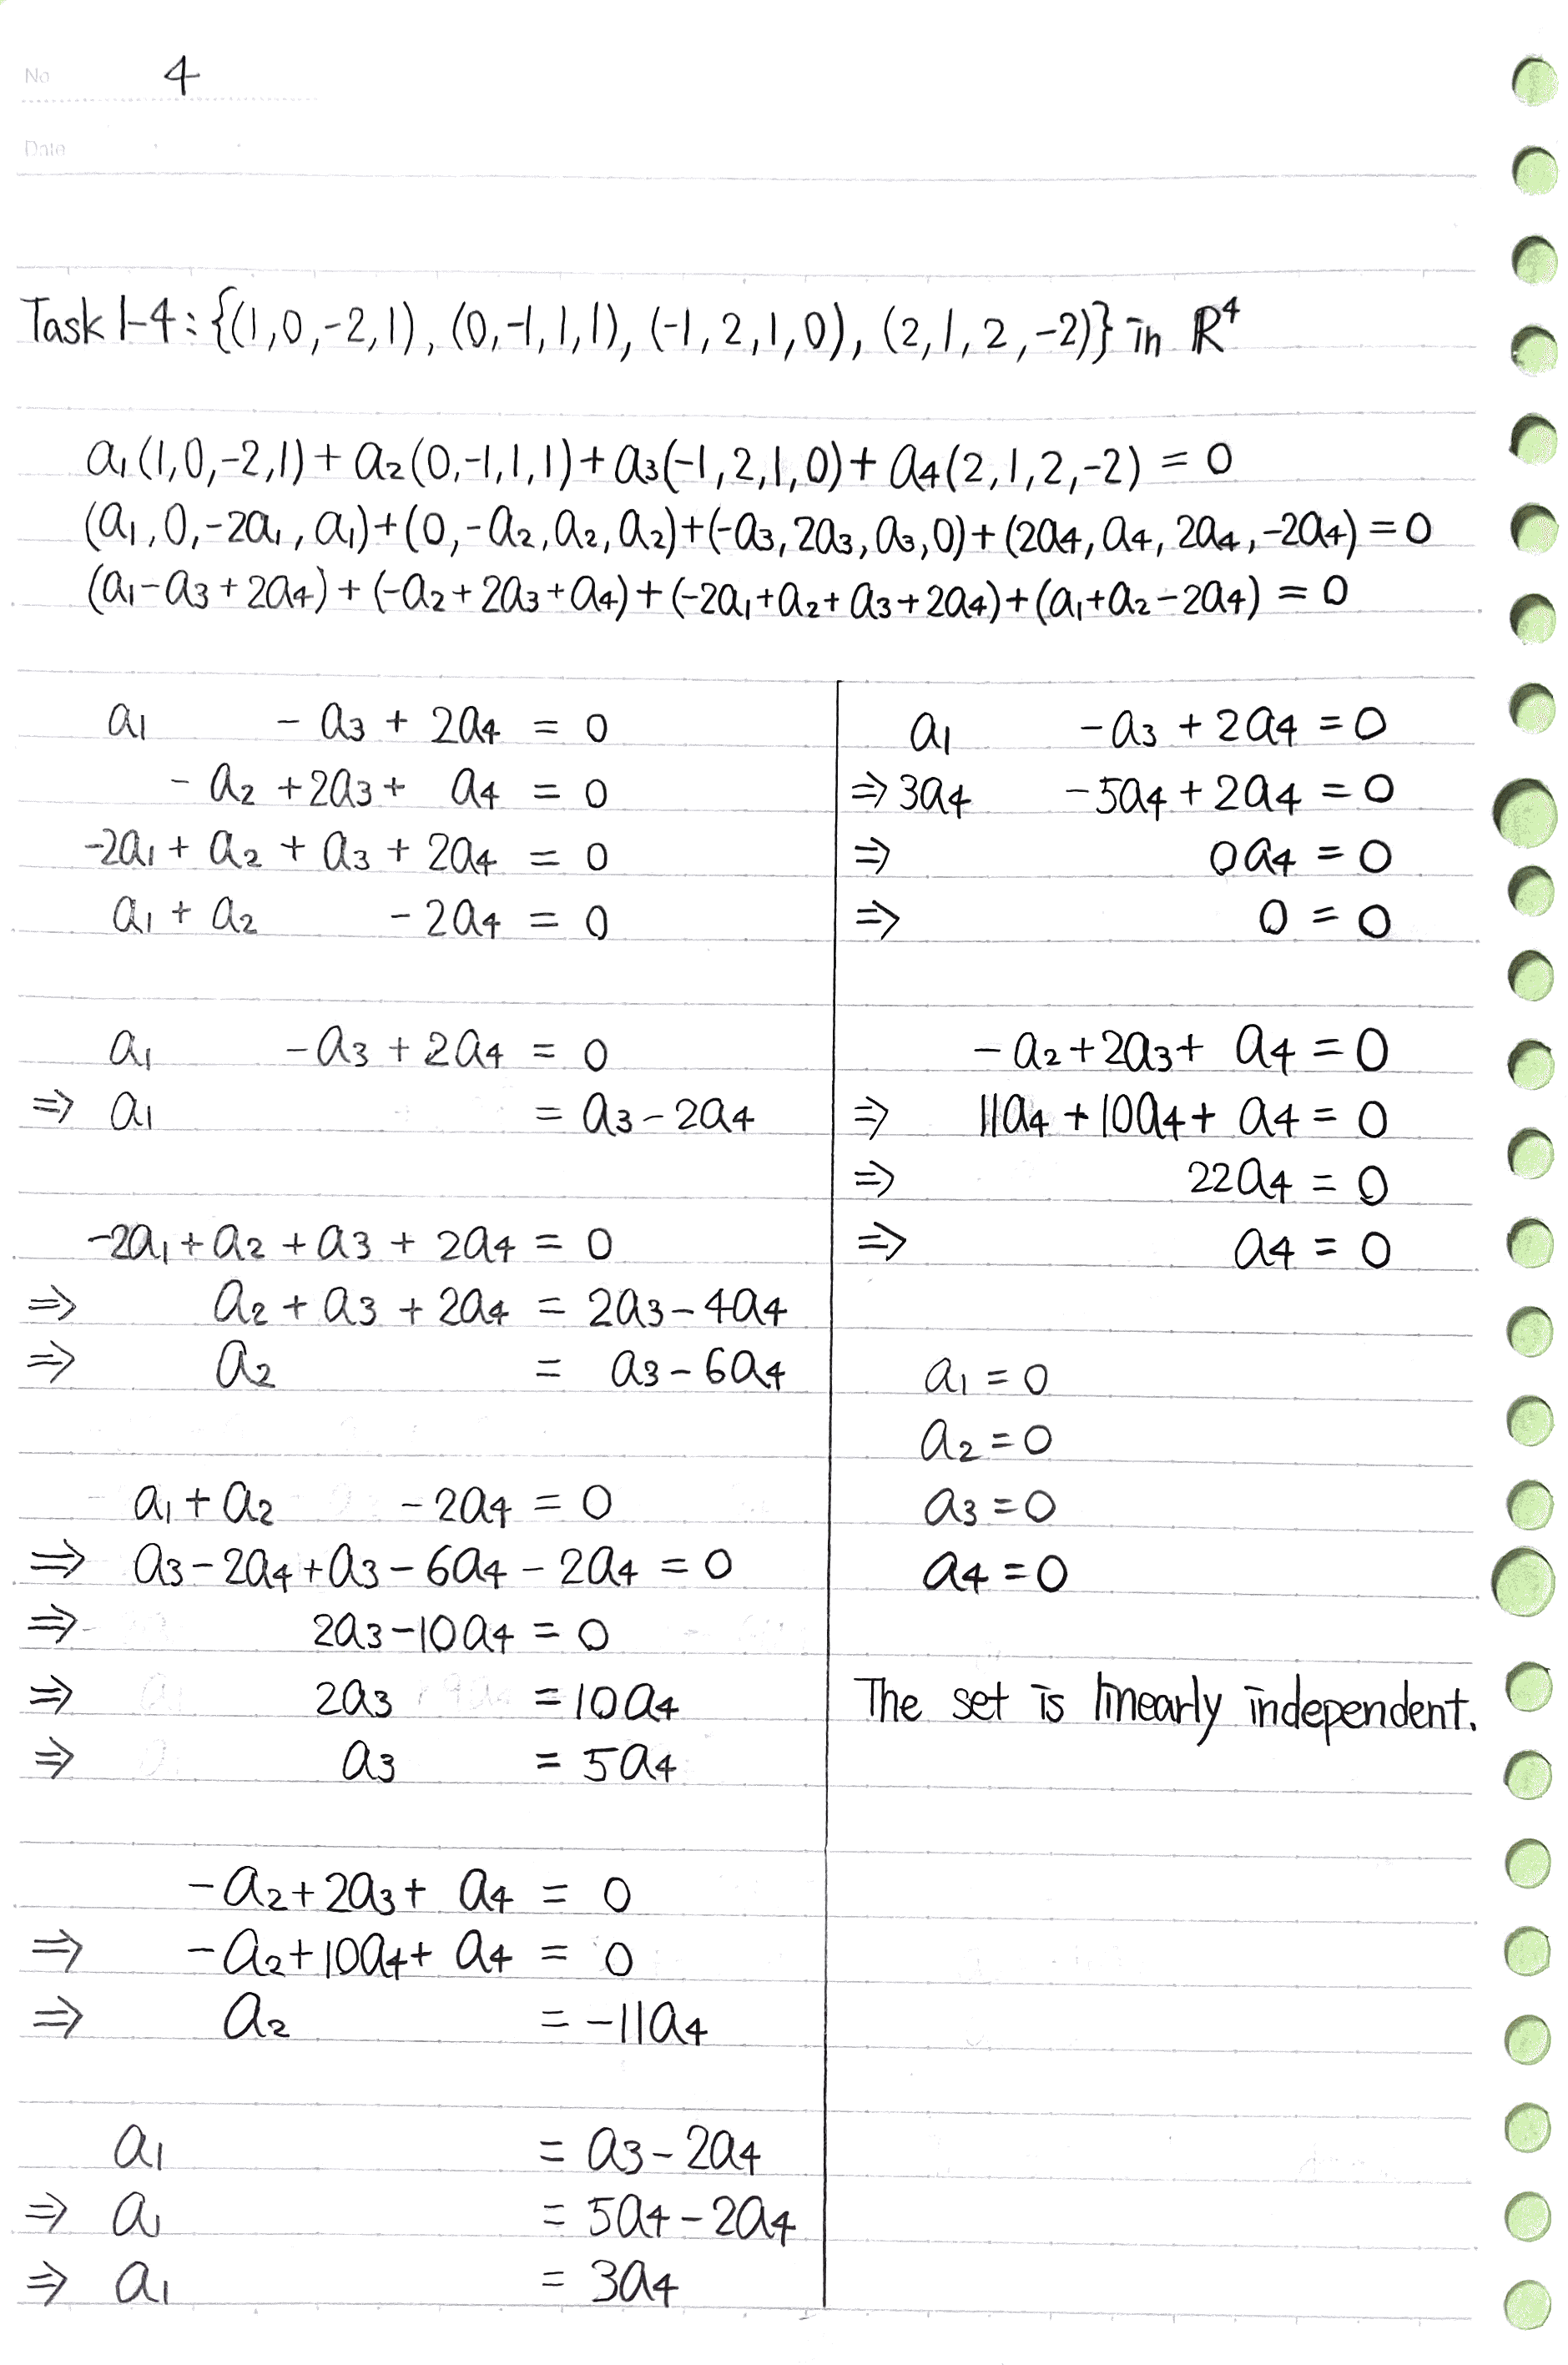 No 4
Date
Task 1-4: {(1,0,-2,1), (0,-1,1,1), (-1,2,1,0), (2,1,2,-2)} in ℝ⁴
a₁(1,0,-2,1) + a₂(0,-1,1,1) + a₃(-1,2,1,0) + a₄(2,1,2,-2) = 0
(a₁,0,-2a₁,a₁)+(0,-a₂,a₂,a₂)+(-a₃,2a₃,a₃,0)+(2a₄,a₄,2a₄,-2a₄) = 0
(a₁-a₃+2a₄)+(-a₂+2a₃+a₄)+(-2a₁+a₂+a₃+2a₄)+(a₁+a₂-2a₄) = 0
a₁ - a₃ + 2a₄ = 0
- a₂ + 2a₃ + a₄ = 0
-2a₁ + a₂ + a₃ + 2a₄ = 0
a₁ + a₂ - 2a₄ = 0
a₁ - a₃ + 2a₄ = 0
⇒ a₁ = a₃ - 2a₄
-2a₁ + a₂ + a₃ + 2a₄ = 0
⇒ a₂ + a₃ + 2a₄ = 2a₃ - 4a₄
⇒ a₂ = a₃ - 6a₄
a₁ + a₂ - 2a₄ = 0
⇒ a₃ - 2a₄ + a₃ - 6a₄ - 2a₄ = 0
⇒ 2a₃ - 10a₄ = 0
⇒ 2a₃ = 10a₄
⇒ a₃ = 5a₄
- a₂ + 2a₃ + a₄ = 0
⇒ - a₂ + 10a₄ + a₄ = 0
⇒ a₂ = -11a₄
a₁ = a₃ - 2a₄
⇒ a₁ = 5a₄ - 2a₄
⇒ a₁ = 3a₄
a₁ - a₃ + 2a₄ = 0
⇒ 3a₄ - 5a₄ + 2a₄ = 0
⇒ 0a₄ = 0
⇒ 0 = 0
- a₂ + 2a₃ + a₄ = 0
⇒ 11a₄ + 10a₄ + a₄ = 0
⇒ 22a₄ = 0
⇒ a₄ = 0
a₁ = 0
a₂ = 0
a₃ = 0
a₄ = 0
The set is linearly independent.